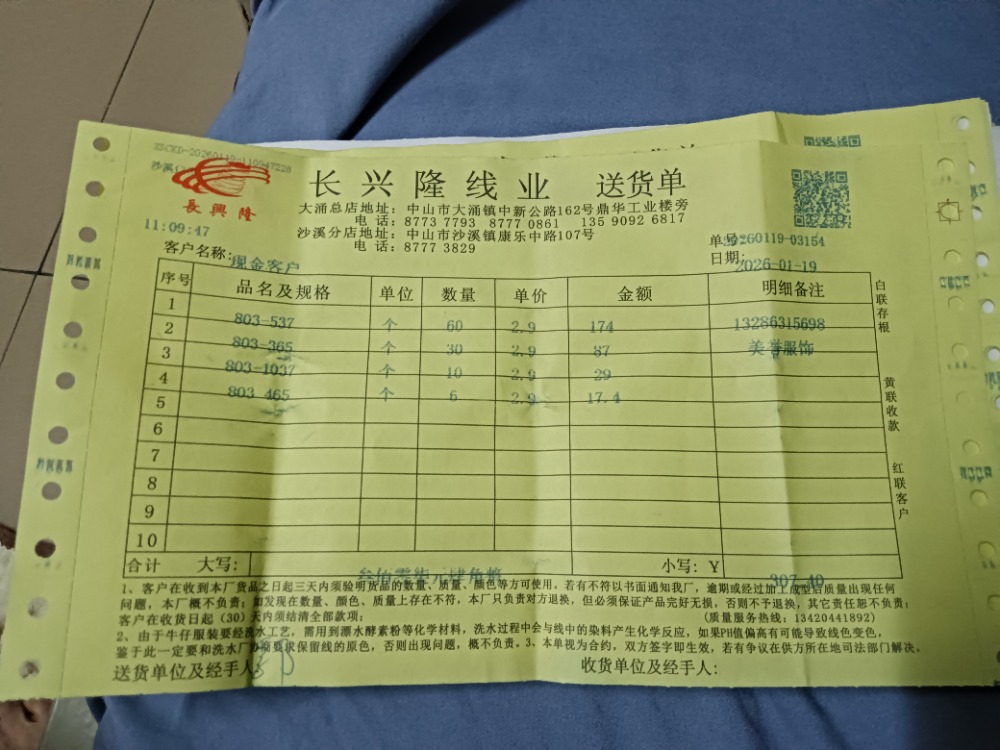 ZSCKD-20260119-110947228
沙溪
長興隆
长兴隆线业 送货单
大涌总店地址：中山市大涌镇中新公路162号鼎华工业楼旁
电 话：8773 7793 8777 0861 135 9092 6817
沙溪分店地址：中山市沙溪镇康乐中路107号
电 话：8777 3829
11:09:47
单号: 20260119-03154
客户名称: 现金客户
日期: 2026-01-19
序号 品名及规格 单位 数量 单价 金额 明细备注
1 803-537 个 60 2.9 174 13286315698
2 803-365 个 30 2.9 87 美誉服饰
3 803-1037 个 10 2.9 29
4 803-465 个 6 2.9 17.4
5
6
7
8
9
10
合计 大写: 小写: Y 307.40
白联存根
黄联收款
红联客户
1、客户在收到本厂货品之日起三天内须验明货品的数量、质量、颜色等方可使用，若有不符以书面通知我厂，逾期或经过加工成型后质量出现任何
问题，本厂概不负责；如发现在数量、颜色、质量上存在不符，本厂只负责对方退换，但必须保证产品完好无损，否则不予退换，其它责任恕不负责；
客户在收货日起（30）天内须结清全部款项； (质量服务热线：13420441892)
2、由于牛仔服装要经洗水工艺，需用到漂水酵素粉等化学材料，洗水过程中会与线中的染料产生化学反应，如果PH值偏高有可能导致线色变色，
鉴于此一定要和洗水厂协商要求保留线的原色，否则出现问题，概不负责。3、本单视为合约，双方签字即生效，若有争议在供方所在地司法部门解决。
送货单位及经手人: 收货单位及经手人: